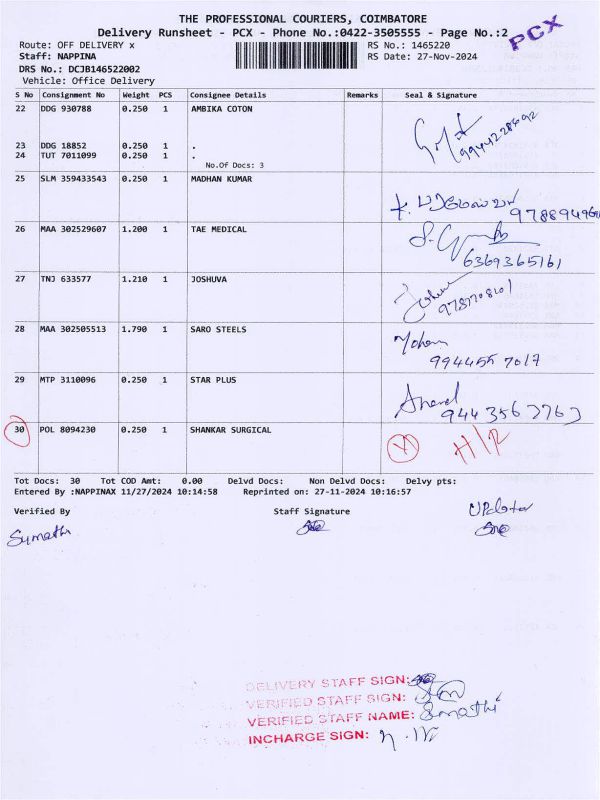 THE PROFESSIONAL COURIERS, COIMBATORE
Delivery Runsheet - PCX - Phone No.:0422-3505555 - Page No.:2
PCX
Route: OFF DELIVERY x RS No.: 1465220
Staff: NAPPINA RS Date: 27-Nov-2024
DRS No.: DCJB146522002
Vehicle: Office Delivery
S No Consignment No Weight PCS Consignee Details Remarks Seal & Signature
22 DDG 930788 0.250 1 AMBIKA COTON
23 DDG 18852 0.250 1 .
24 TUT 7011099 0.250 1 .
No.Of Docs: 3
25 SLM 359433543 0.250 1 MADHAN KUMAR
26 MAA 302529607 1.200 1 TAE MEDICAL
6369365161
27 TNJ 633577 1.210 1 JOSHUVA
28 MAA 302505513 1.790 1 SARO STEELS
Mohan
994455 7017
29 MTP 3110096 0.250 1 STAR PLUS
Anand
30 POL 8094230 0.250 1 SHANKAR SURGICAL
Tot Docs: 30 Tot COD Amt: 0.00 Delvd Docs: Non Delvd Docs: Delvy pts:
Entered By :NAPPINAX 11/27/2024 10:14:58 Reprinted on: 27-11-2024 10:16:57
Verified By Staff Signature
Sumathi
DELIVERY STAFF SIGN:
VERIFIED STAFF SIGN:
VERIFIED STAFF NAME: Sumathi
INCHARGE SIGN: